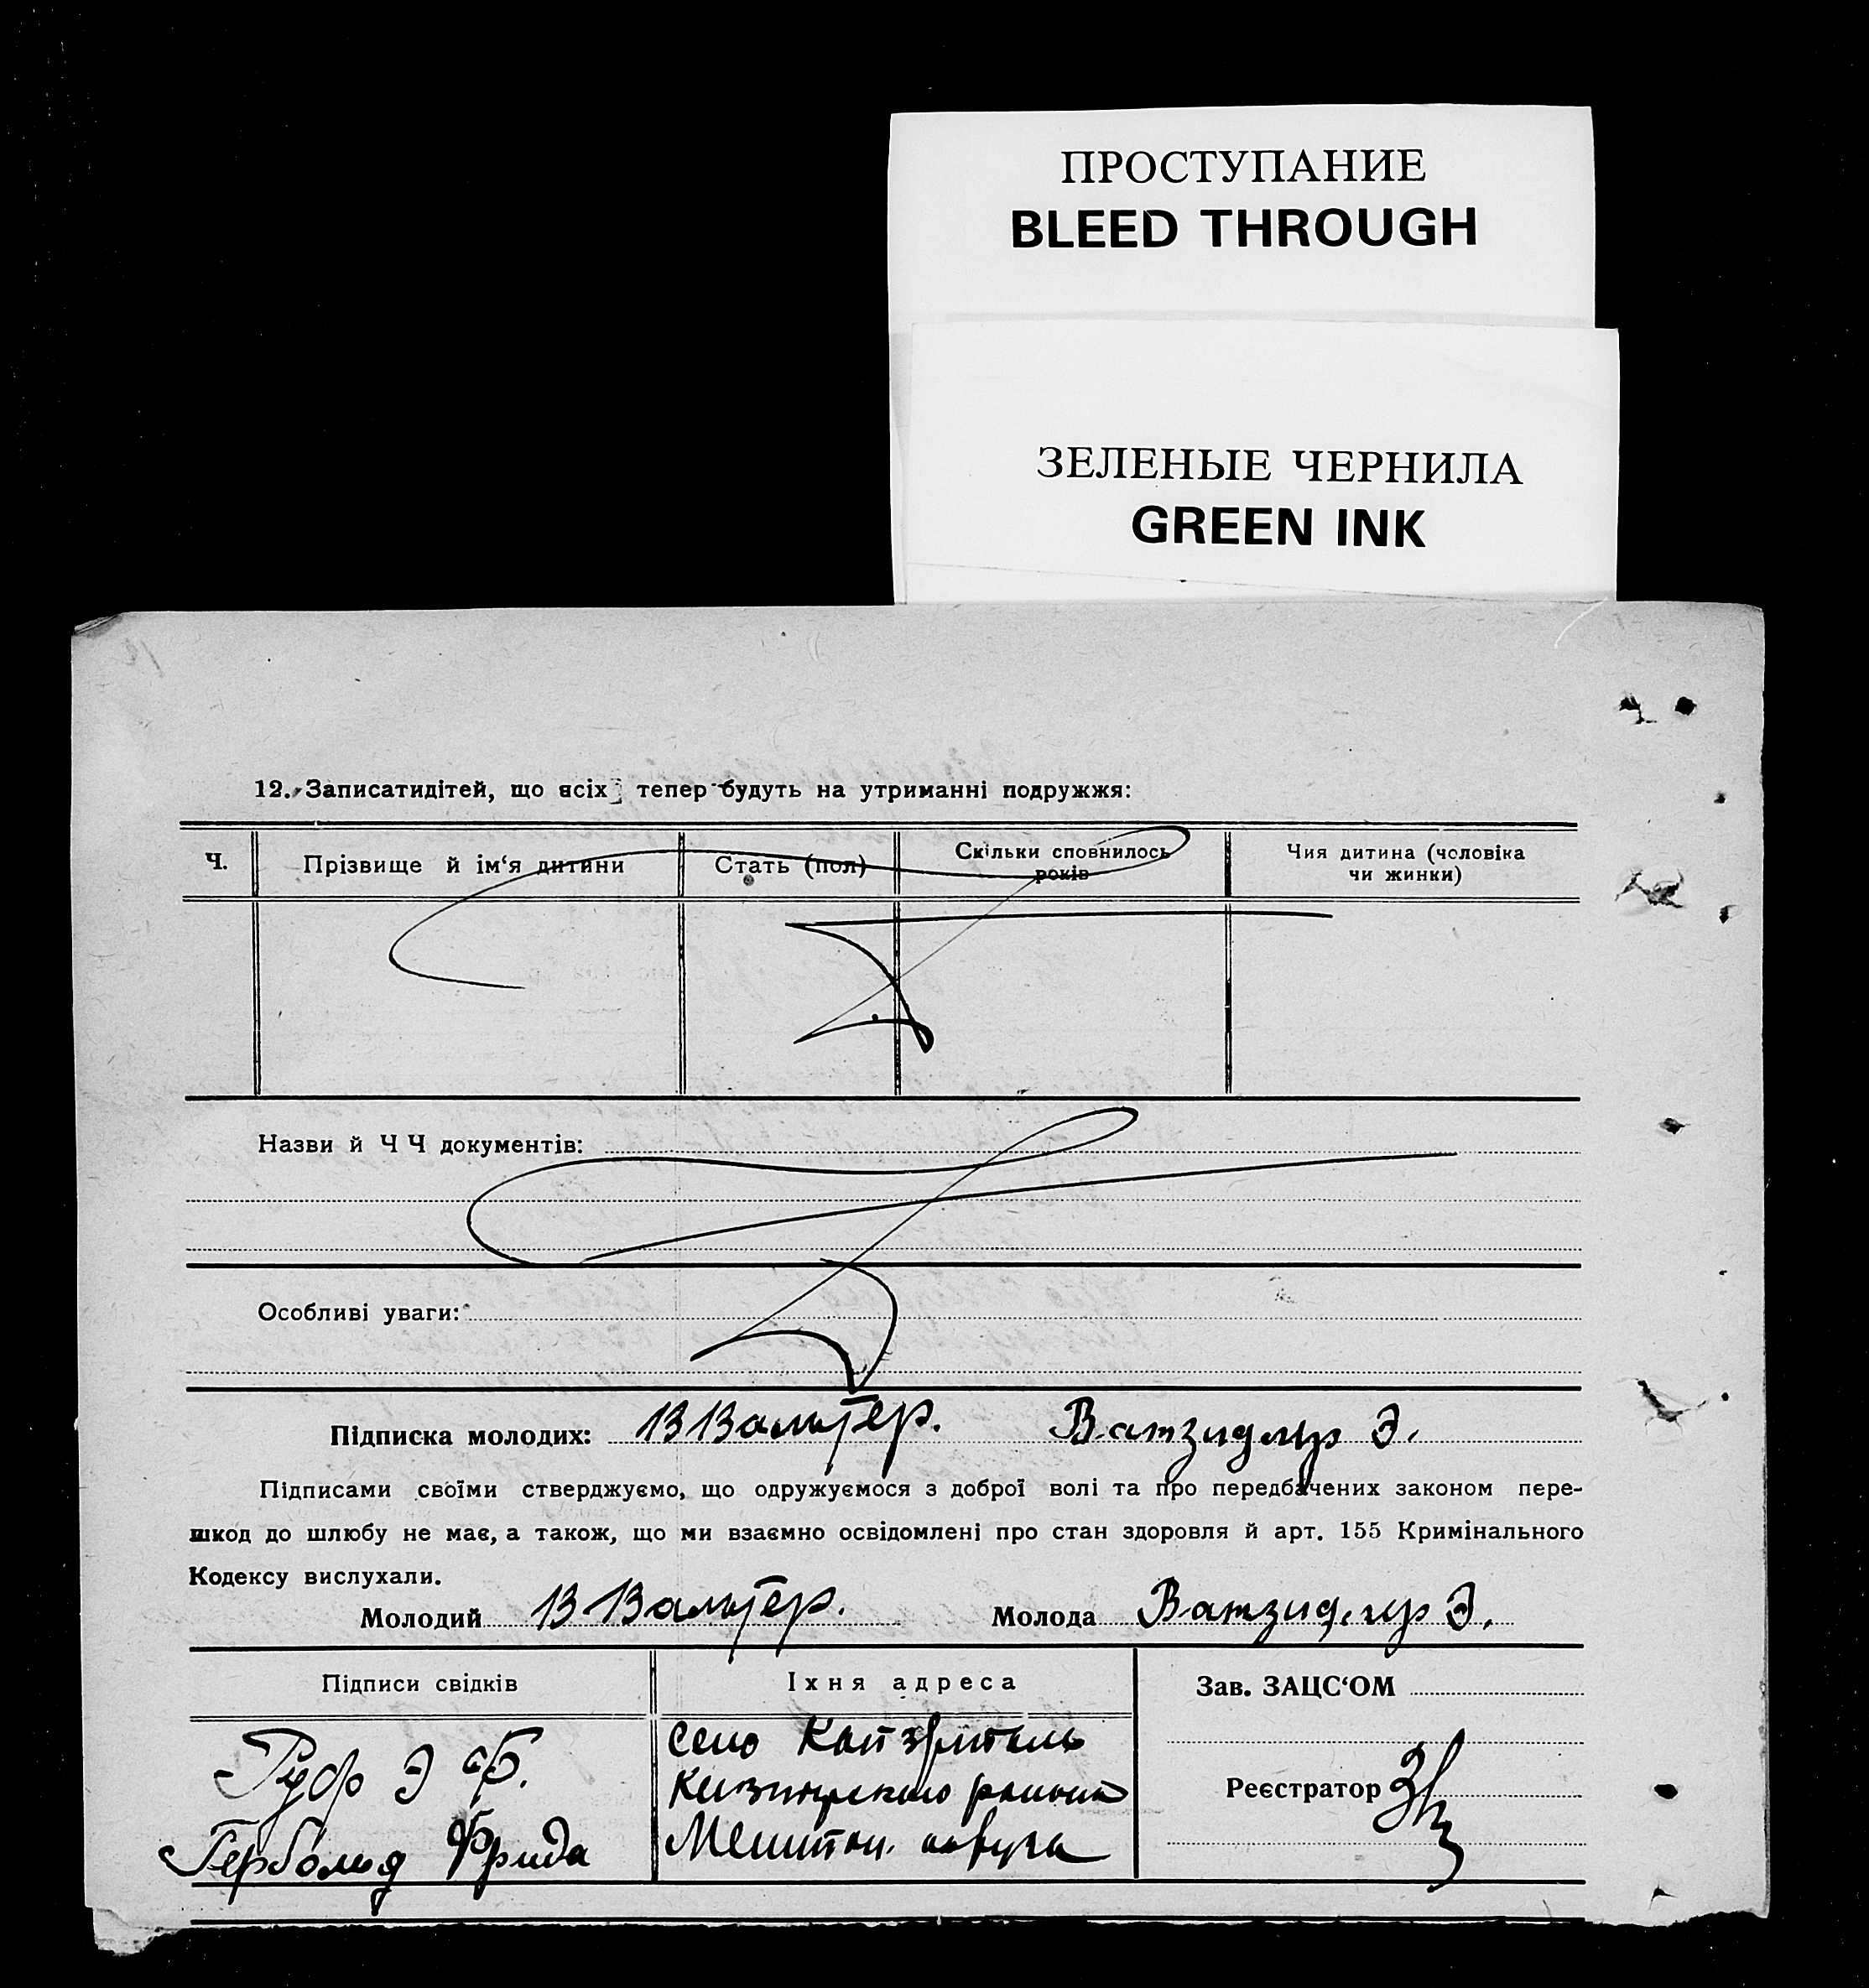 ПРОСТУПАНИЕ
BLEED THROUGH
ЗЕЛЕНЫЕ ЧЕРНИЛА
GREEN INK
12. Записатидітей, що всіх тепер будуть на утриманні подружжя:
Ч.
Прізвище й ім‘я дитини
Стать (пол)
Скільки сповнилось
років
Чия дитина (чоловіка
чи жинки)
Назви й Ч Ч документів:
Особливі уваги:
Підписка молодих: В Вальтер. Ватзидлер Э.
Підписами своїми стверджуємо, що одружуємося з доброї волі та про передбачених законом пере-
шкод до шлюбу не має, а також, що ми взаємно освідомлені про стан здоровля й арт. 155 Кримінального
Кодексу вислухали.
Молодий В Вальтер. Молода Ватзидлер Э.
Підписи свідків
Руф Э Ф.
Герболид Фрида
Іхня адреса
село
района
округа
Зав. ЗАЦС‘ОМ
Реєстратор